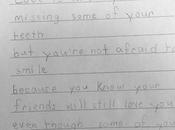 missing some of your
teeth
but you're not afraid to
smile
because you know your
friends will still love you
even though some of your